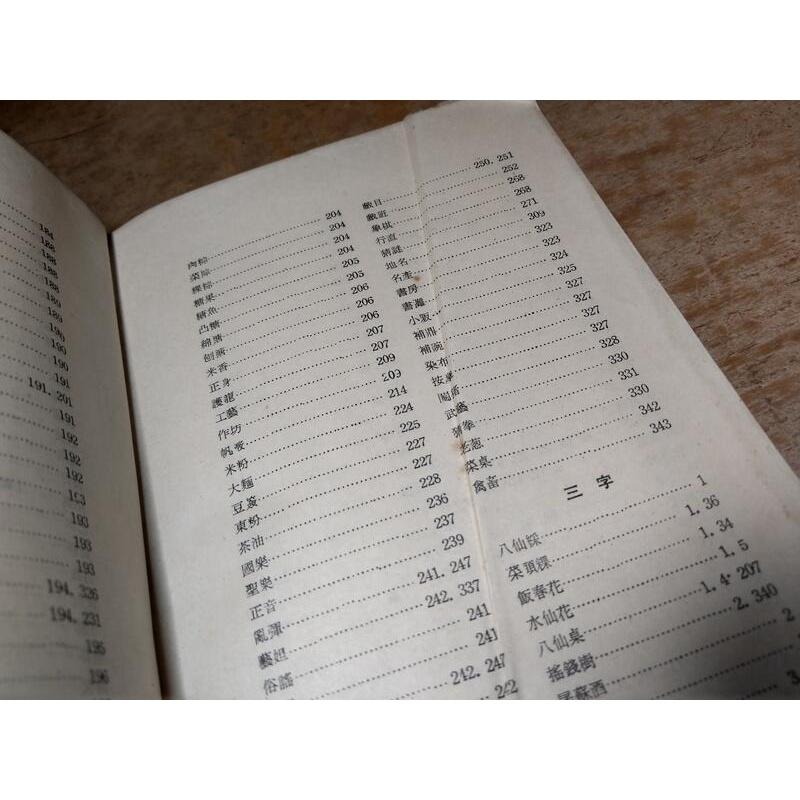 184
188
188
188
188
189
189
190
190
191
191. 201
191
192
192
192
193
193
193
193
194. 326
194. 231
195
196
肉粽 204
菜粽 204
粿粽 204
糖果 205
糖魚 205
凸糖 206
綿糖 206
刨糖 207
米香 207
正身 209
護龍 209
工藝 214
作坊 224
帆寮 225
米粉 227
大麵 227
豆簽 228
東粉 236
茶油 237
國樂 239
聖樂 241. 247
正音 242. 337
亂彈 241
藝妲 241
俗謠 242. 247
242
戲目 250. 251
戲班 252
象棋 268
行直 268
猜謎 271
地名 309
名產 323
書房 323
書灘 324
小販 325
補鼎 327
補碗 327
染布 327
按摩 328
閹畜 330
武藝 330
猜拳 331
菜桌 342
禽畜 343
三字
八仙綵 1
菜頭粿 1. 36
飯春花 1. 34
水仙花 1. 5
八仙桌 1. 4. 207
搖錢樹 2. 340
蘇西 2